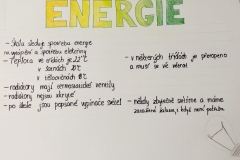 ENERGIE
- Škola sleduje spotřebu energie
na vytápění a spotřebu elektřiny
- Teplota ve třídách je 22°C
v šatnách 20°C
v tělocvičnách 18°C
- radiátory mají termostatické ventily
- radiátory nejsou skryté
- po škole jsou popsané vypínače světel
- v některých třídách je přetopeno
a musí se víc větrat
- někdy zbytečně svítíme a máme
i když není potřeba